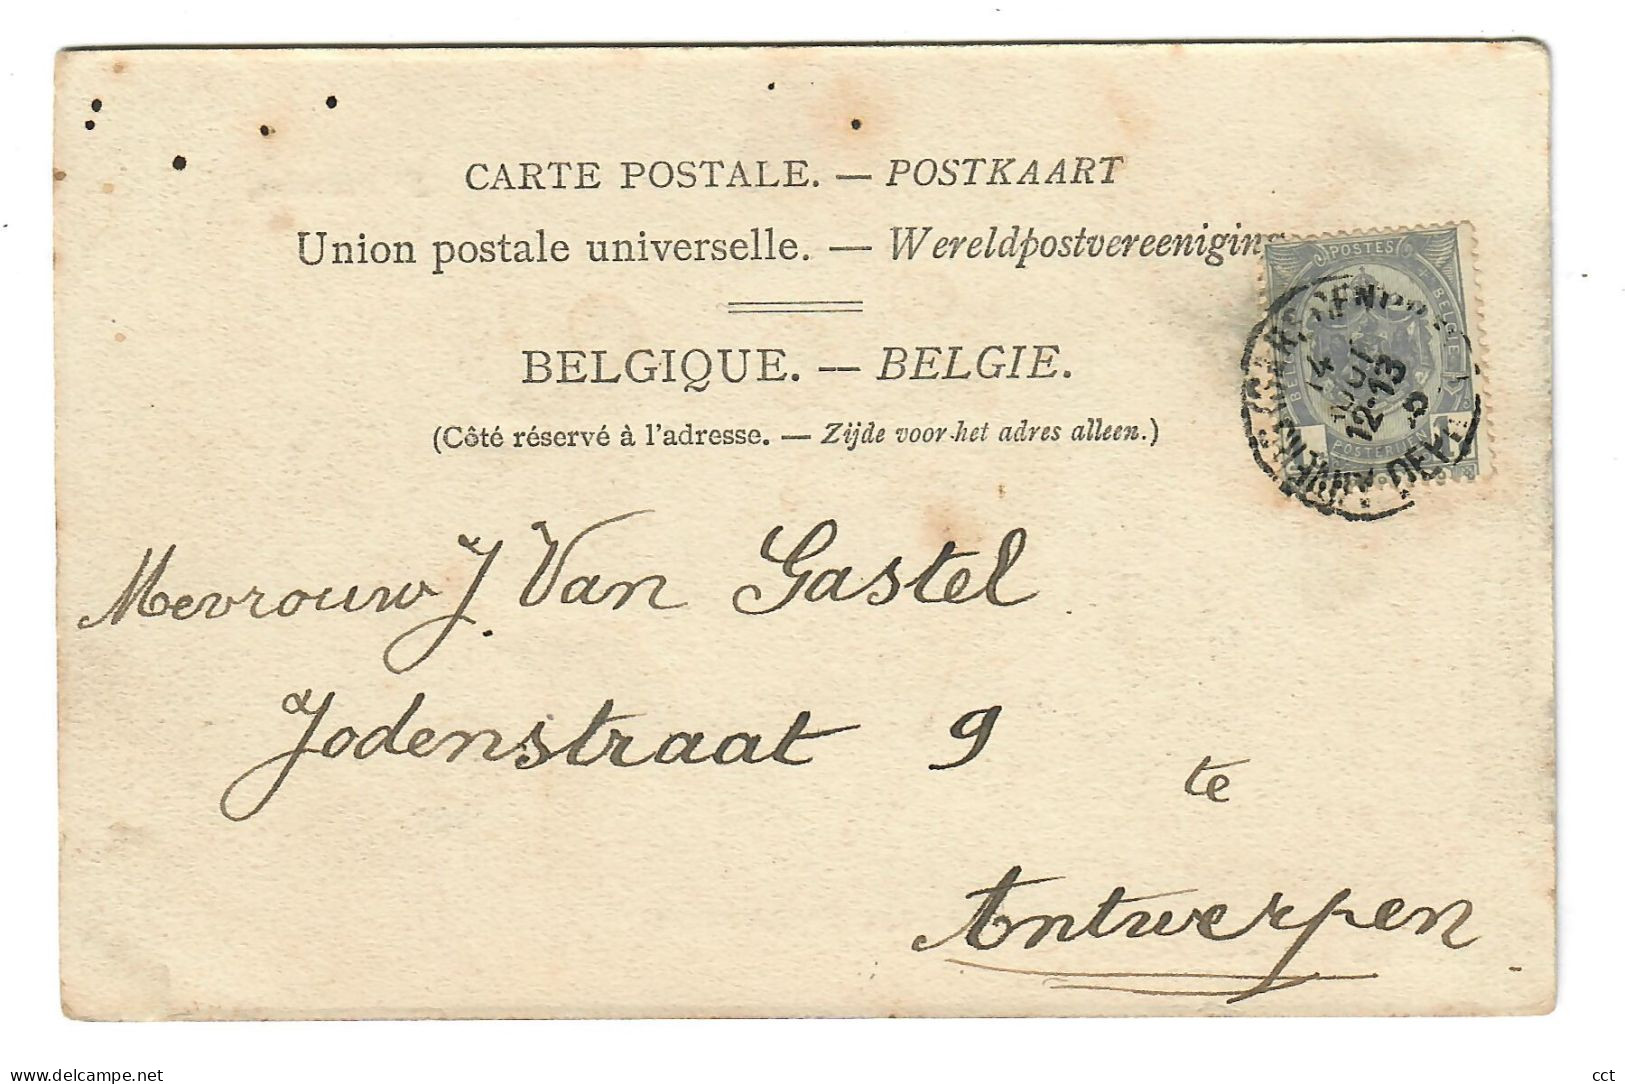 CARTE POSTALE. — POSTKAART
Union postale universelle. — Wereldpostvereeniging
BELGIQUE. — BELGIE.
(Côté réservé à l'adresse. — Zijde voor het adres alleen.)
POSTES
BELGIË
POSTERIJEN
12-13
Mevrouw J. Van Gastel
Jodenstraat 9
te
Antwerpen
www.delcampe.net
cct